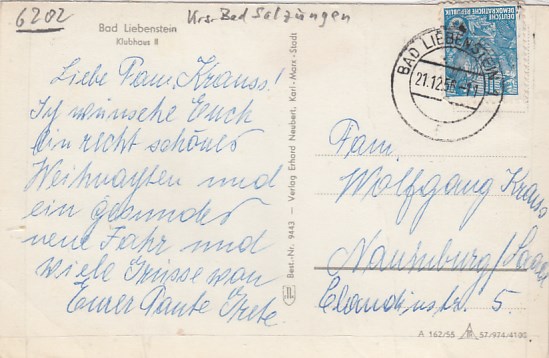 6202
Krs. Bad Salzungen
Bad Liebenstein
Klubhaus II
Liebe Fam. Krauss!
Ich wünsche Euch
ein recht schönes
Weihnachten und
ein gesundes
neue Jahr und
viele Grüsse von
Eurer Tante Grete.
Best.-Nr. 9443 — Verlag Erhard Neubert, Karl-Marx-Stadt
DEUTSCHE
DEMOKRATISCHE REPUBLIK
BAD LIEBENSTEIN
21.12.56
Fam.
Wolfgang Krauss
Naumburg/Saale
Claudiusstr. 5.
A 162/55 57/974/4100